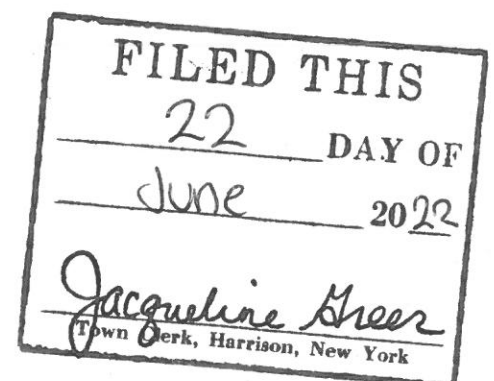 FILED THIS
22 DAY OF
June 2022
Jacqueline Greer
Town Clerk, Harrison, New York